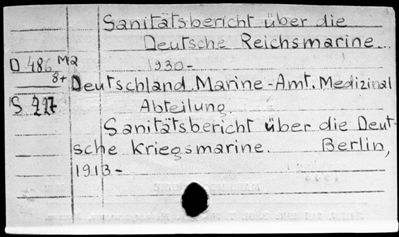 Sanitätsbericht über die
Deutsche Reichsmarine.
D 486 M2 1930-
8+ Deutschland. Marine-Amt. Medizinal
S. 227 Abteilung.
Sanitätsbericht über die Deut-
sche Kriegsmarine. Berlin,
1913-